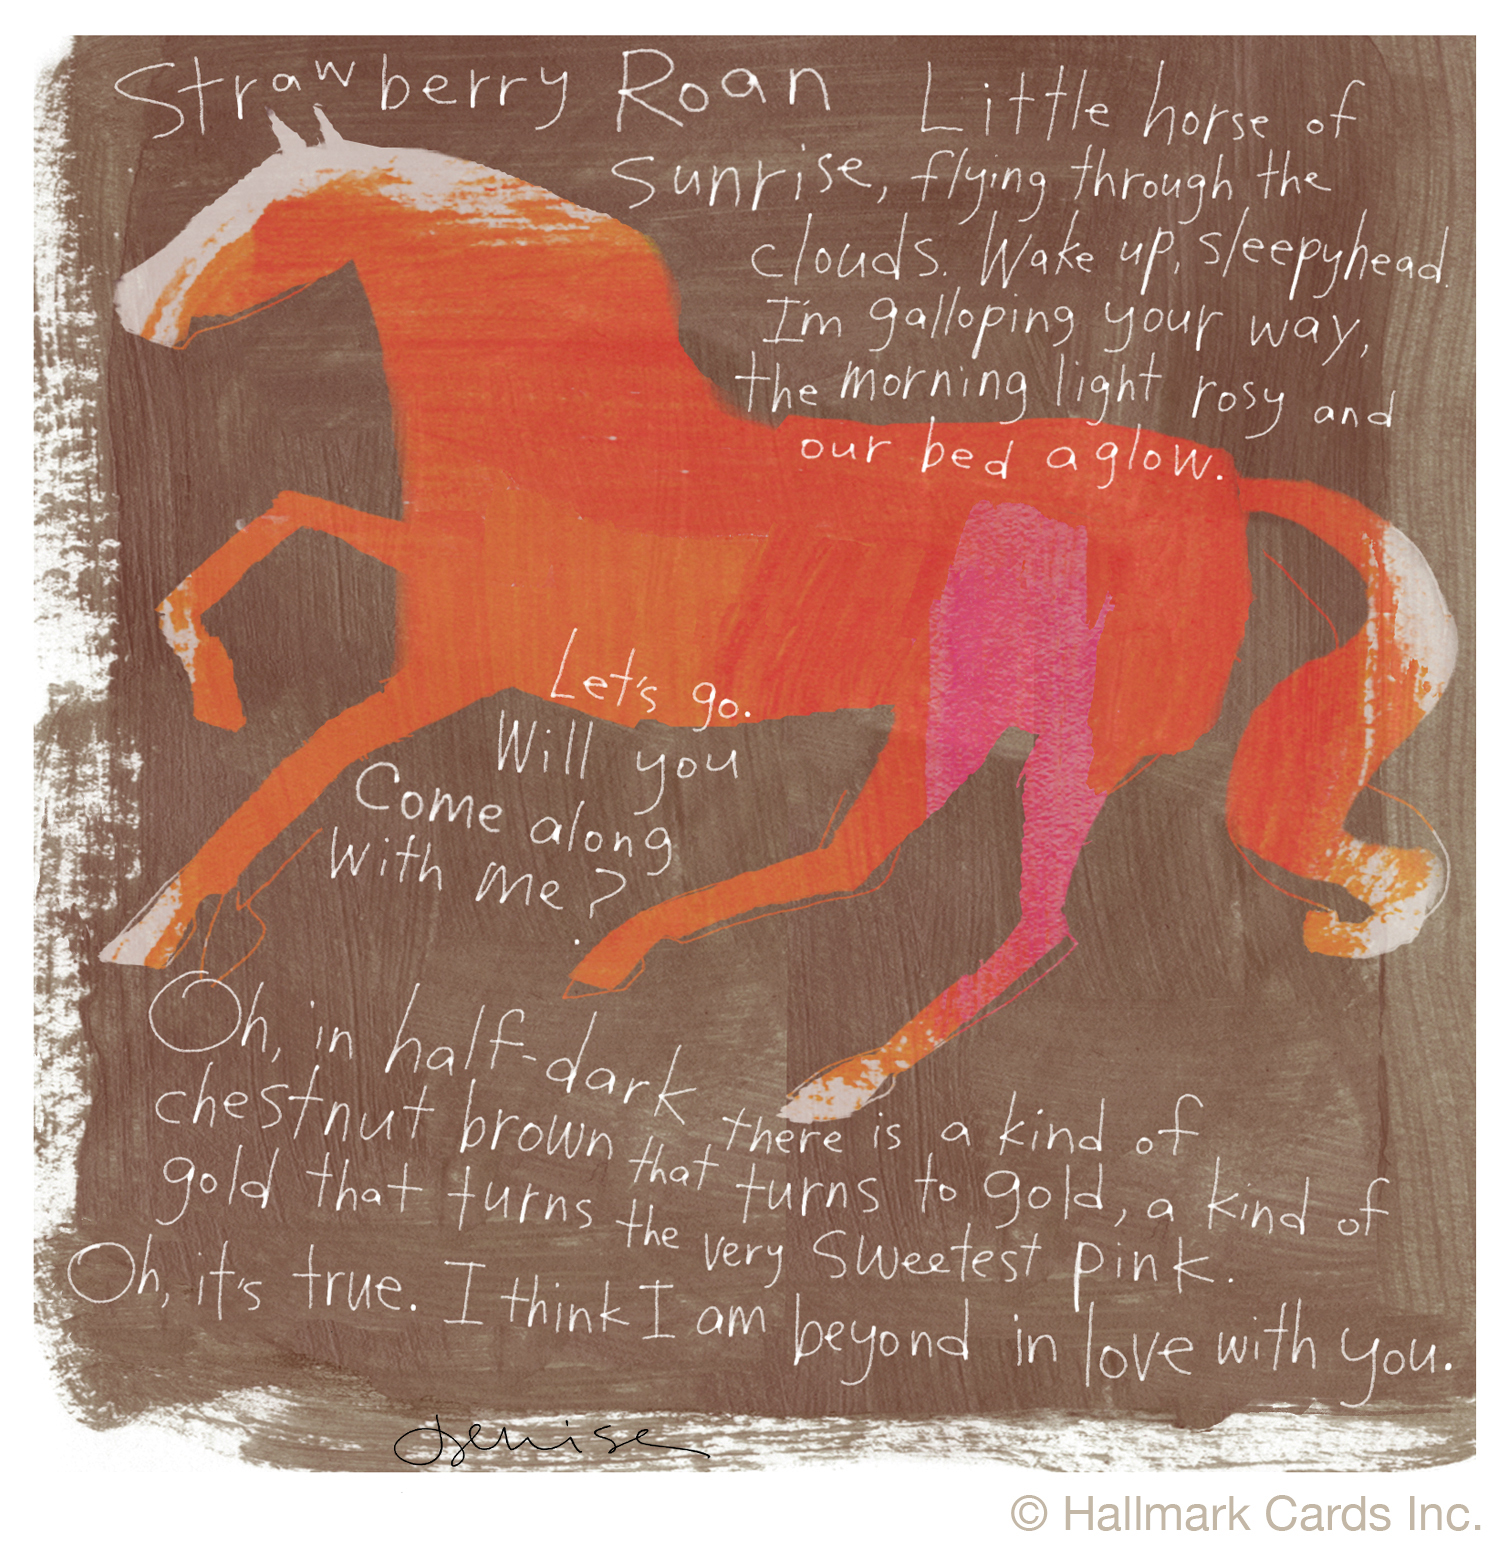 Strawberry Roan
Little horse of
Sunrise, flying through the
clouds. Wake up, sleepyhead.
I'm galloping your way,
the morning light rosy and
our bed aglow.
Let's go.
Will you
Come along
with me?
Oh, in half-dark there is a kind of
chestnut brown that turns to gold, a kind of
gold that turns the very sweetest pink.
Oh, it's true. I think I am beyond in love with you.
Denise
© Hallmark Cards Inc.